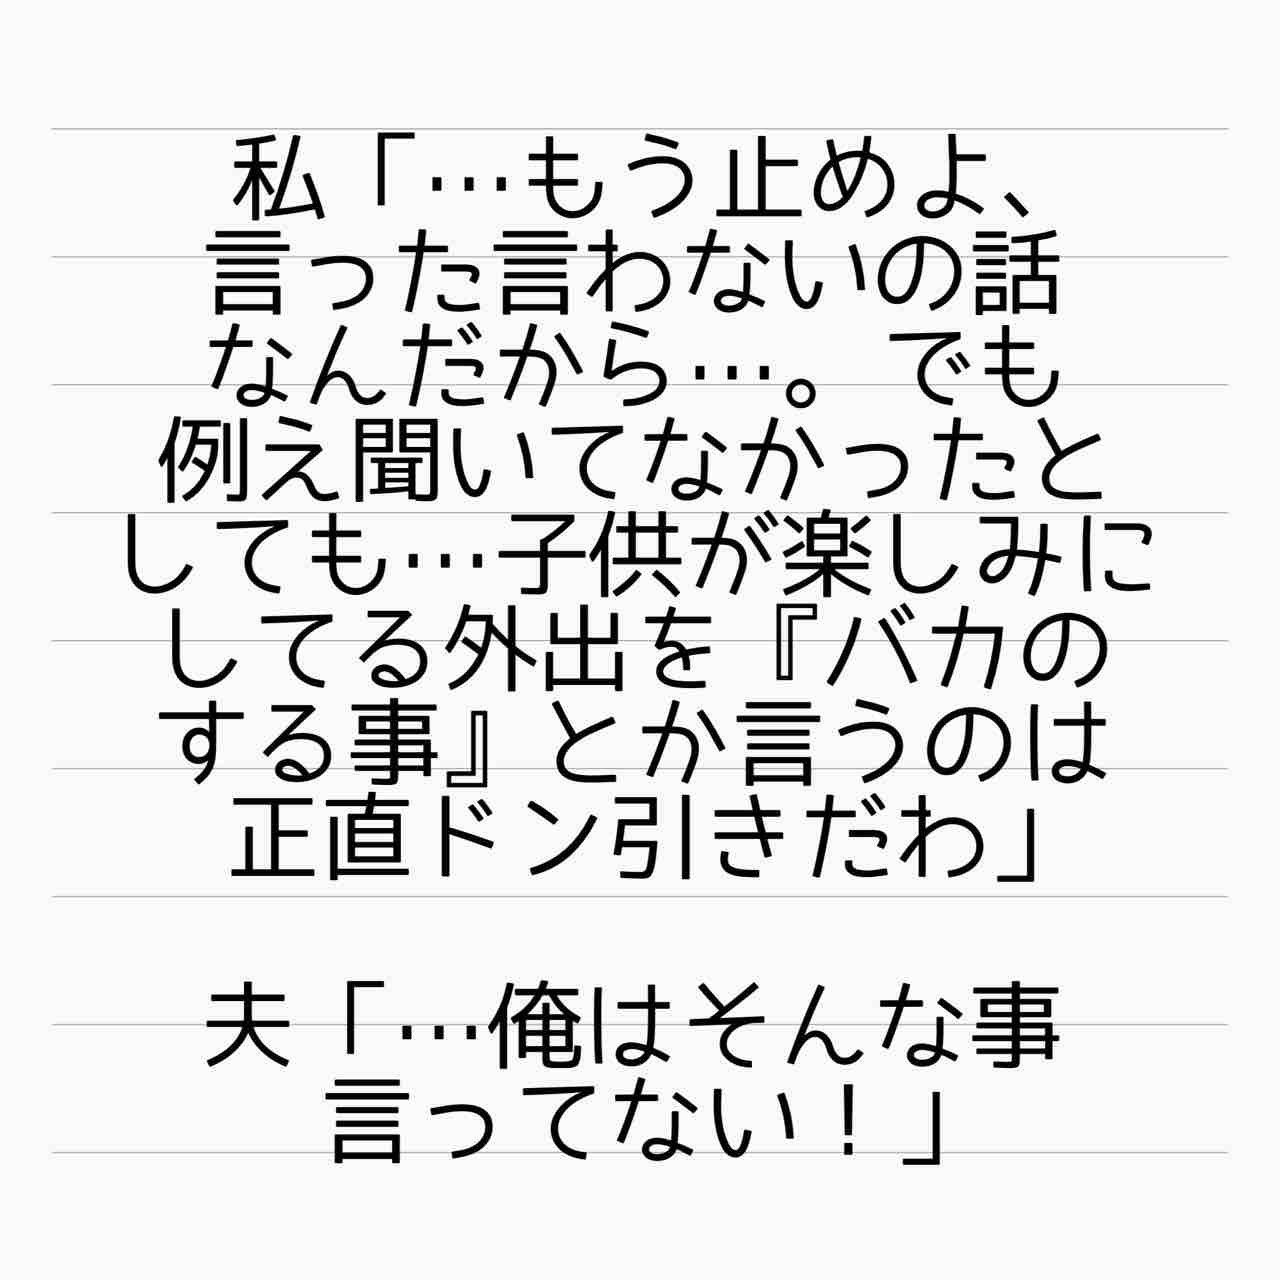 私「…もう止めよ、
言った言わないの話
なんだから…。でも
例え聞いてなかったと
しても…子供が楽しみに
してる外出を『バカの
する事』とか言うのは
正直ドン引きだわ」
夫「…俺はそんな事
言ってない！」